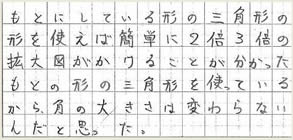 もとにしている形の三角形の
形を使えば簡単に2倍3倍の
拡大図がかけることが分かった
もとの形の三角形を使っている
から、角の大きさは変わらない
んだと思った。